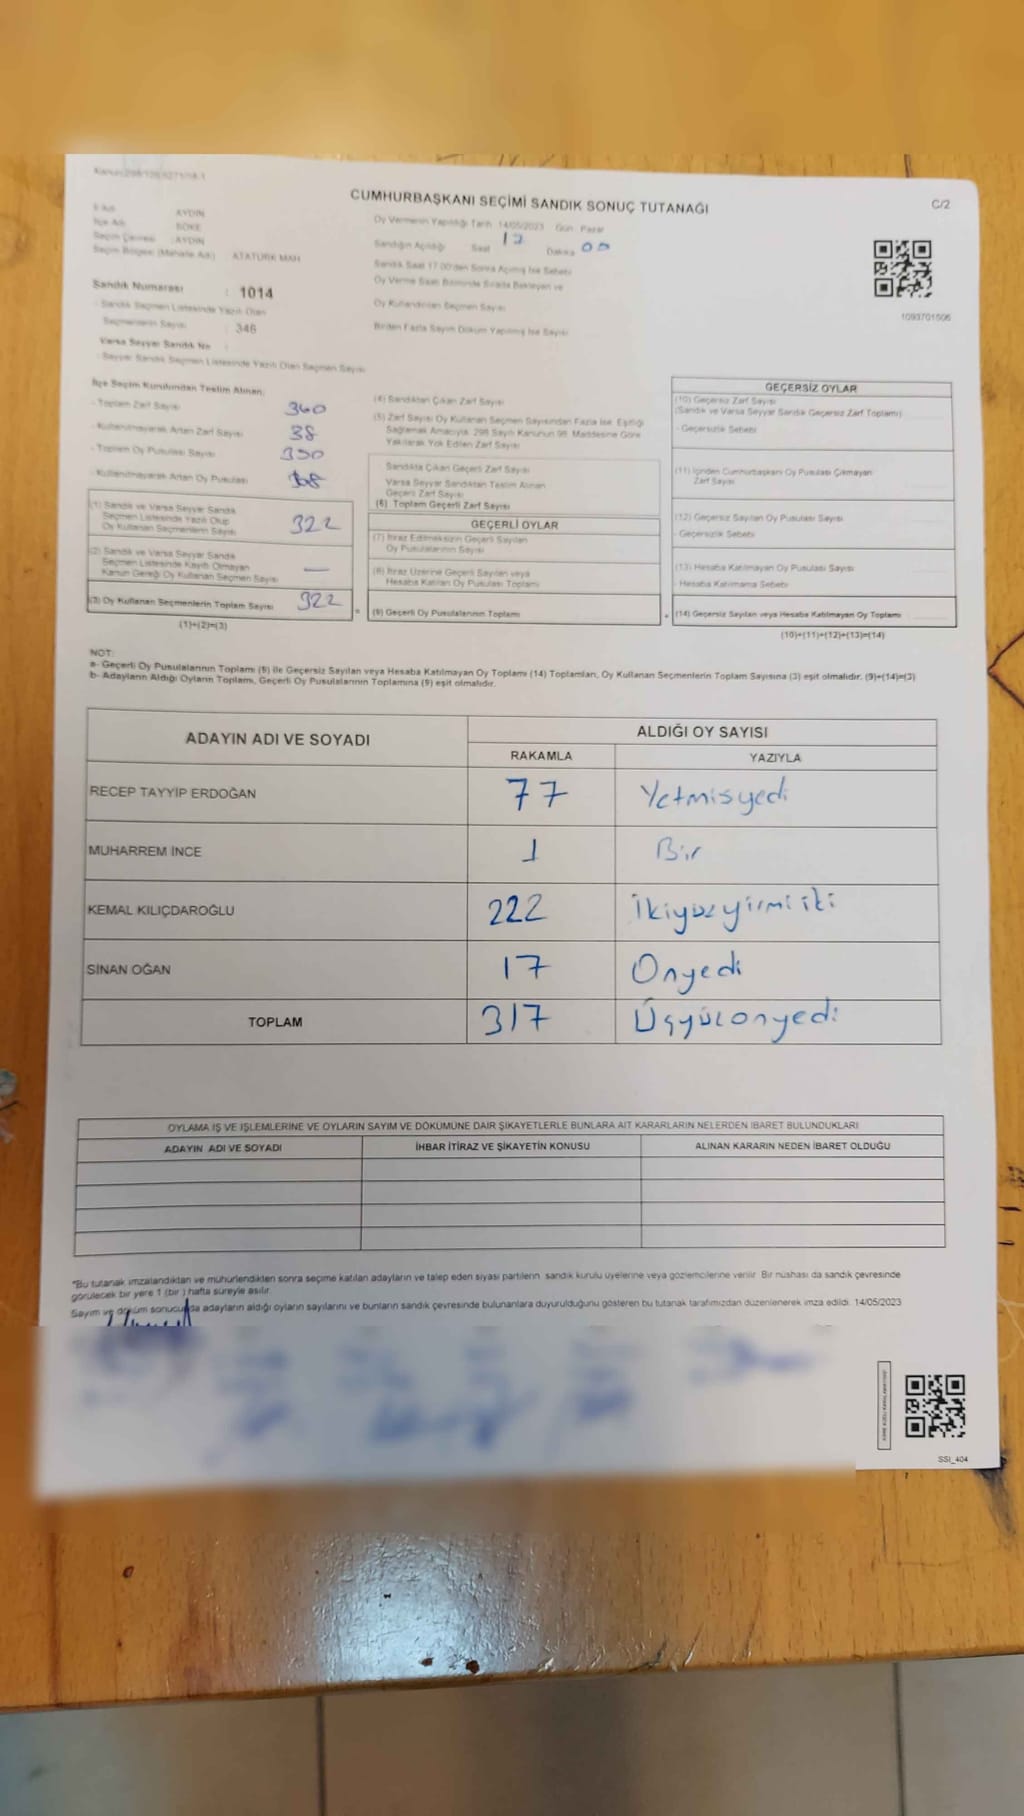 CUMHURBAŞKANI SEÇİMİ SANDIK SONUÇ TUTANAĞI
C/2
İl Adı AYDIN
İlçe Adı SÖKE
Seçim Çevresi : AYDIN
Seçim Bölgesi (Mahalle Adı) : ATATÜRK MAH
Sandık Numarası : 1014
- Sandık Seçmen Listesinde Yazılı Olan
Seçmenlerin Sayısı : 346
Varsa Seyyar Sandık No
- Seyyar Sandık Seçmen Listesinde Yazılı Olan Seçmen Sayısı
Oy Vermenin Yapıldığı Tarih 14/05/2023 Gün Pazar
Sandığın Açıldığı Saat 17 Dakika 00
Sandık Saat 17.00'den Sonra Açılmış İse Sebebi
Oy Verme Saati Bitiminde Sırada Bekleyen ve
Oy Kullandırılan Seçmen Sayısı
Birden Fazla Sayım Döküm Yapılmış İse Sayısı
1093701506
İlçe Seçim Kurulundan Teslim Alınan;
- Toplam Zarf Sayısı 360
- Kullanılmayarak Artan Zarf Sayısı 38
- Toplam Oy Pusulası Sayısı 350
- Kullanılmayarak Artan Oy Pusulası
(1) Sandık ve Varsa Seyyar Sandık
Seçmen Listesinde Yazılı Olup
Oy Kullanan Seçmenlerin Sayısı 322
(2) Sandık ve Varsa Seyyar Sandık
Seçmen Listesinde Kayıtlı Olmayan
Kanun Gereği Oy Kullanan Seçmen Sayısı —
(3) Oy Kullanan Seçmenlerin Toplam Sayısı 322
(1)+(2)=(3)
(4) Sandıktan Çıkan Zarf Sayısı
(5) Zarf Sayısı Oy Kullanan Seçmen Sayısından Fazla İse, Eşitliği
Sağlamak Amacıyla, 298 Sayılı Kanunun 98. Maddesine Göre
Yakılarak Yok Edilen Zarf Sayısı
Sandıkta Çıkan Geçerli Zarf Sayısı
Varsa Seyyar Sandıktan Teslim Alınan
Geçerli Zarf Sayısı
(6) Toplam Geçerli Zarf Sayısı
GEÇERLİ OYLAR
(7) İtiraz Edilmeksizin Geçerli Sayılan
Oy Pusulalarının Sayısı
(8) İtiraz Üzerine Geçerli Sayılan veya
Hesaba Katılan Oy Pusulası Toplamı
(9) Geçerli Oy Pusulalarının Toplamı
GEÇERSİZ OYLAR
(10) Geçersiz Zarf Sayısı
(Sandık ve Varsa Seyyar Sandık Geçersiz Zarf Toplamı)
- Geçersizlik Sebebi
(11) İçinden Cumhurbaşkanı Oy Pusulası Çıkmayan
Zarf Sayısı
(12) Geçersiz Sayılan Oy Pusulası Sayısı
- Geçersizlik Sebebi
(13) Hesaba Katılmayan Oy Pusulası Sayısı
- Hesaba Katılmama Sebebi
(14) Geçersiz Sayılan veya Hesaba Katılmayan Oy Toplamı
(10)+(11)+(12)+(13)=(14)
NOT:
a- Geçerli Oy Pusulalarının Toplamı (9) ile Geçersiz Sayılan veya Hesaba Katılmayan Oy Toplamı (14) Toplamları, Oy Kullanan Seçmenlerin Toplam Sayısına (3) eşit olmalıdır. (9)+(14)=(3)
b- Adayların Aldığı Oyların Toplamı, Geçerli Oy Pusulalarının Toplamına (9) eşit olmalıdır.
ADAYIN ADI VE SOYADI
ALDIĞI OY SAYISI
RAKAMLA YAZIYLA
RECEP TAYYİP ERDOĞAN 77 Yetmisyedi
MUHARREM İNCE 1 Bir
KEMAL KILIÇDAROĞLU 222 İkiyüzyirmi iki
SİNAN OĞAN 17 Onyedi
TOPLAM 317 Üçyüzonyedi
OYLAMA İŞ VE İŞLEMLERİNE VE OYLARIN SAYIM VE DÖKÜMÜNE DAİR ŞİKAYETLERLE BUNLARA AİT KARARLARIN NELERDEN İBARET BULUNDUKLARI
ADAYIN ADI VE SOYADI İHBAR İTİRAZ VE ŞİKAYETİN KONUSU ALINAN KARARIN NEDEN İBARET OLDUĞU
*Bu tutanak imzalandıktan ve mühürlendikten sonra seçime katılan adayların ve talep eden siyasi partilerin sandık kurulu üyelerine veya gözlemcilerine verilir. Bir nüshası da sandık çevresinde
görülecek bir yere 1 (bir) hafta süreyle asılır.
Sayım ve döküm sonucunda adayların aldığı oyların sayılarını ve bunların sandık çevresinde bulunanlara duyurulduğunu gösteren bu tutanak tarafımızdan düzenlenerek imza edildi. 14/05/2023
SSI_404